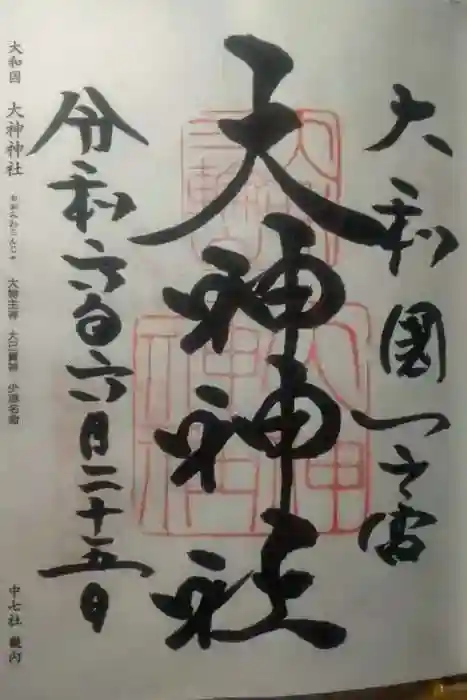 大和國一之宮
大神神社
令和六年六月二十五日
大和国 大神神社 おおみわじんじゃ 大物主神 大己貴神 少彦名命 中七社 畿内
大神神社